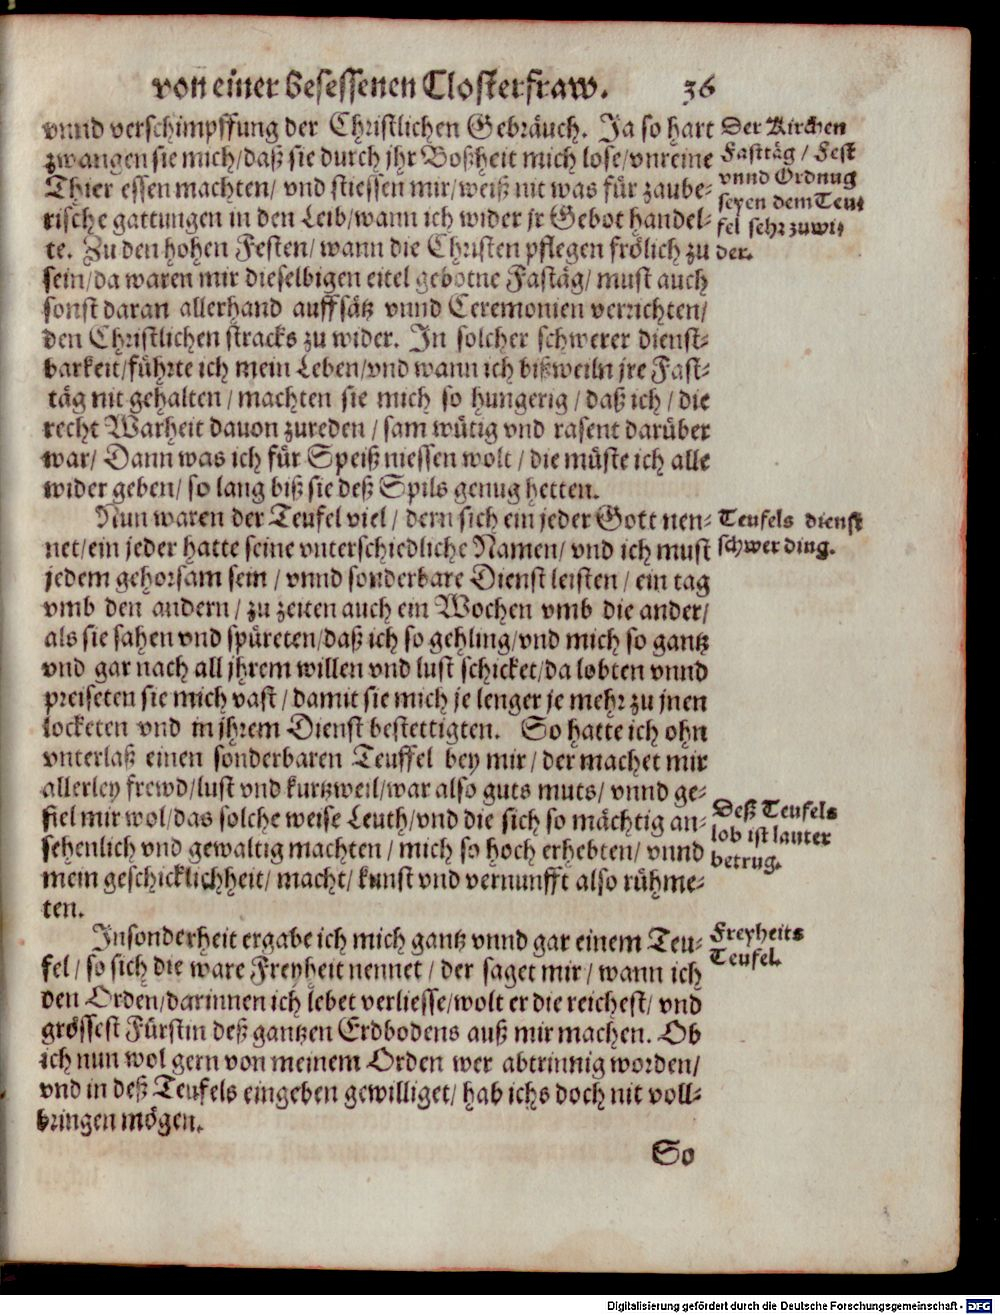 von einer besessenen Closterfraw. 36
vnnd verschimpffung der Christlichen Gebräuch. Ja so hart
zwangen sie mich/daß sie durch jhr Boßheit mich lose/vnreine
Thier essen machten/ vnd stiessen mir/weiß nit was für zaube-
rische gattungen in den Leib/wann ich wider jr Gebot handel-
te. Zu den hohen Festen/ wann die Christen pflegen frölich zu
sein/da waren mir dieselbigen eitel gebotne Fastäg/ must auch
sonst daran allerhand auffsätz vnnd Ceremonien verrichten/
den Christlichen stracks zu wider. In solcher schwerer dienst-
barkeit/führte ich mein Leben/vnd wann ich bißweiln jre Fast-
täg nit gehalten / machten sie mich so hungerig / daß ich / die
recht Warheit dauon zureden / sam wütig vnd rasent darüber
war/ Dann was ich für Speiß niessen wolt / die müste ich alle
wider geben/ so lang biß sie deß Spils genug hetten.
Der Kirchen
Fasttäg / Fest
vnnd Ordnug
seyen dem Teu-
fel sehr zuwi-
der.
Nun waren der Teufel viel / dern sich ein jeder Gott nen-
net/ein jeder hatte seine vnterschiedliche Namen/ vnd ich must
jedem gehorsam sein / vnnd sonderbare Dienst leisten / ein tag
vmb den andern / zu zeiten auch ein Wochen vmb die ander/
als sie sahen vnd spüreten/daß ich so gehling/vnd mich so gantz
vnd gar nach all jhrem willen vnd lust schicket/da lobten vnnd
preiseten sie mich vast / damit sie mich je lenger je mehr zu jnen
locketen vnd in jhrem Dienst bestettigten. So hatte ich ohn
vnterlaß einen sonderbaren Teuffel bey mir / der machet mir
allerley frewd/lust vnd kurtzweil/war also guts muts/ vnnd ge-
fiel mir wol/das solche weise Leuth/vnd die sich so mächtig an-
sehenlich vnd gewaltig machten / mich so hoch erhebten/ vnnd
mein geschicklichheit/ macht/ kunst vnd vernunfft also rühme-
ten.
Teufels dienst
schwer ding.
Deß Teufels
lob ist lauter
betrug.
Insonderheit ergabe ich mich gantz vnnd gar einem Teu-
fel / so sich die ware Freyheit nennet / der saget mir / wann ich
den Orden/darinnen ich lebet verliesse/wolt er die reichest/ vnd
grössest Fürstin deß gantzen Erdbodens auß mir machen. Ob
ich nun wol gern von meinem Orden wer abtrinnig worden/
vnd in deß Teufels eingeben gewilliget/ hab ichs doch nit voll-
bringen mögen.
Freyheits
Teufel.
So
Digitalisierung gefördert durch die Deutsche Forschungsgemeinschaft - DFG